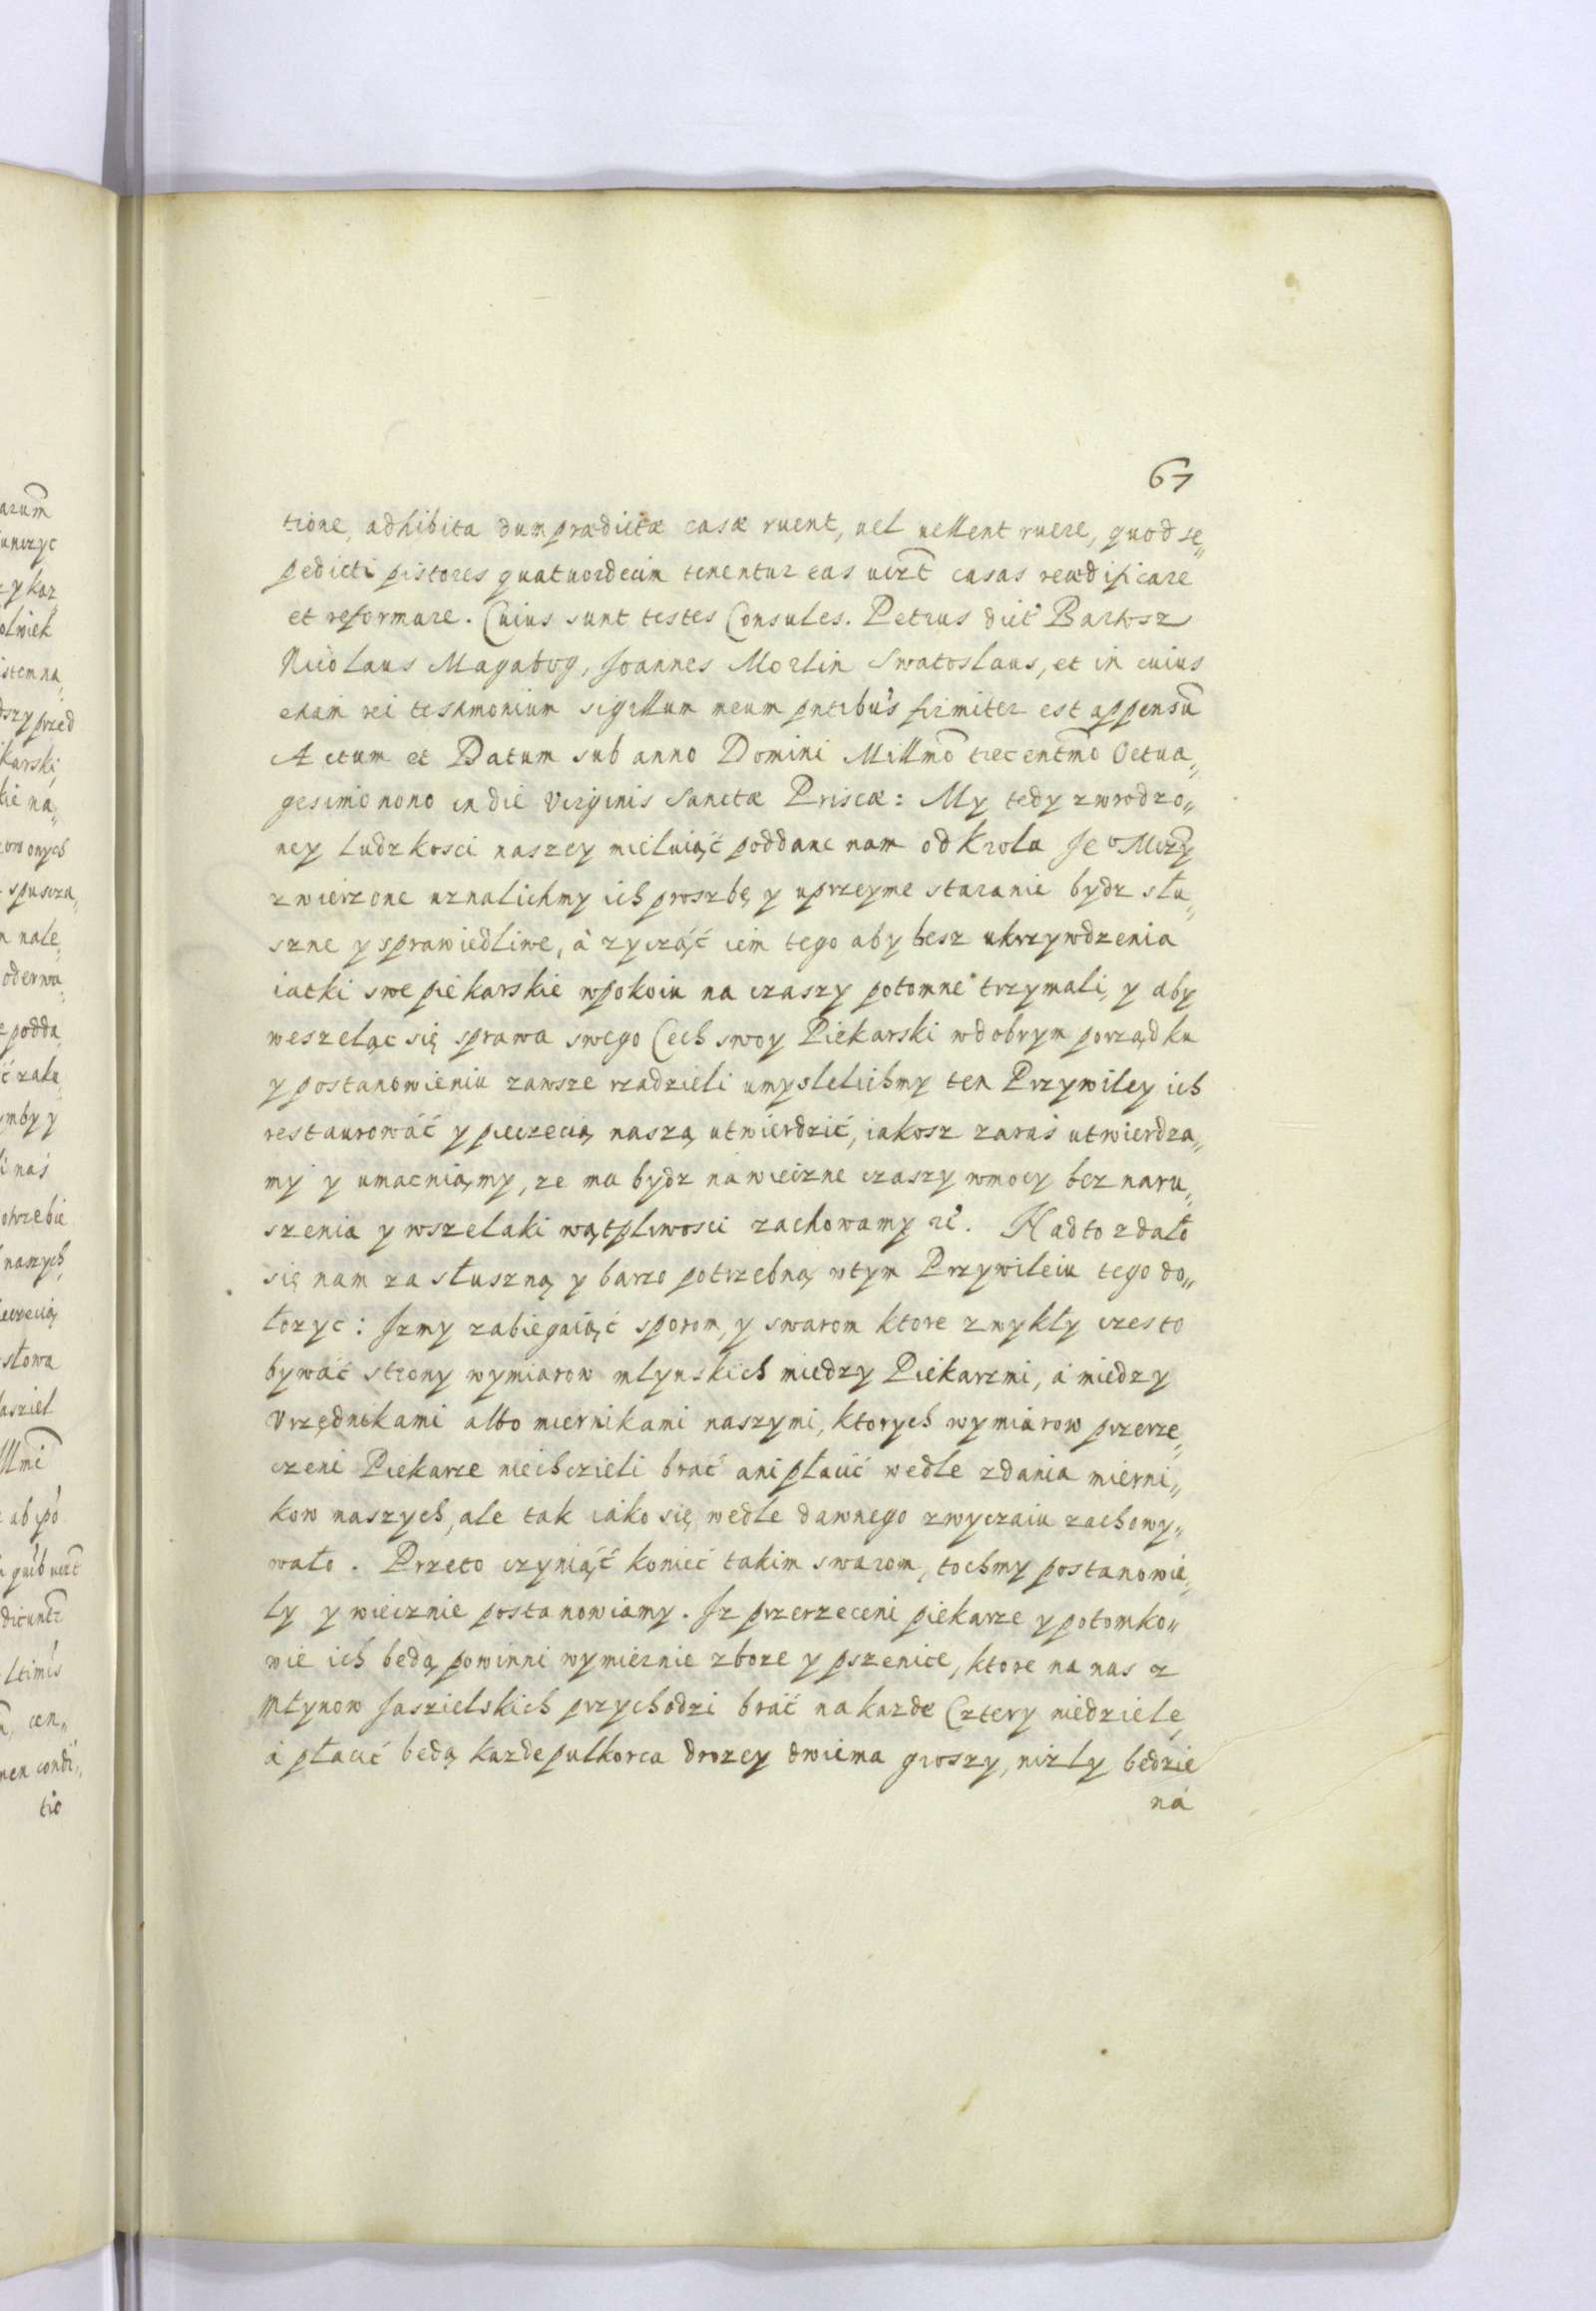 67
tione, adhibita dum prædictæ casæ ruent, uel uellent ruere, quod se„
pedicti pistores quatuordecim tenentur eas uert casas reædificare
et reformare. Cuius sunt testes Consules. Petrus dict Bartosz
Nicolaus Magabog, Joannes Morlin Swatoslaus, et in cuius
etiam rei testimonium sigillum meum pntibus firmiter est appensū
Actum et Datum sub anno Domini Millmo trecentmo Octua„
gesimo nono in die Virginis Sanctæ Priscæ: My tedy z wrodzo„
ney ludzkosci naszey miluiąć poddane nam od Krola Je° Mczy
zwierzone uznalichmy ich proszbę y uprzeyme staranie bydz słu„
szne y sprawiedliwe, à zycząć iem tego aby besz ukrzywdzenia
iatki swe piekarskie wpokoiu na czaszy potomne trzymali, y aby
weszeląc się sprawa swego Cech swoy Piekarski wdobrym porządku
y postanowieniu zawsze rzadzieli umyslelichmy ten Przywiley ich
restaurowáć y pieczecią naszą utwierdzić, iakosz zaras utwierdza„
my y umacniąmy, ze ma bydz na wieczne czaszy wmocy bez naru„
szenia y wszelaki wątpliwosci zachowamy. Nadto zdało
się nam za słuszną y barzo potrzebną wtym Przywileiu tego do„
łozyc: Jzmy zabiegaiąć sporom, y swarom ktore zwykły czesto
bywáć strony wymiarow mlynskich miedzy Piekarzmi, á miedzy
Vrzędnikami albo miernikami naszymi, ktorych wymiarow przerze„
czeni Piekarze niechczieli brać ani płacić wedle zdania mierni„
kow naszych, ale tak iako się wedle dawnego zwyczaiu zachowy„
wało. Przeto czyniąć konieć takim swarom, tochmy postanowie„
ly y wiecznie postanowiamy. Jz przerzeceni piekarze y potomko„
wie ich bedą powinni wymiernie zboze y pszenice, ktore na nas z
Młynow Jaszielskich przychodzi bráć na kazde Cztery niedziele
á płacić bedą kazde pulkorca drozey dwiema groszy, nizly bedzie
ná